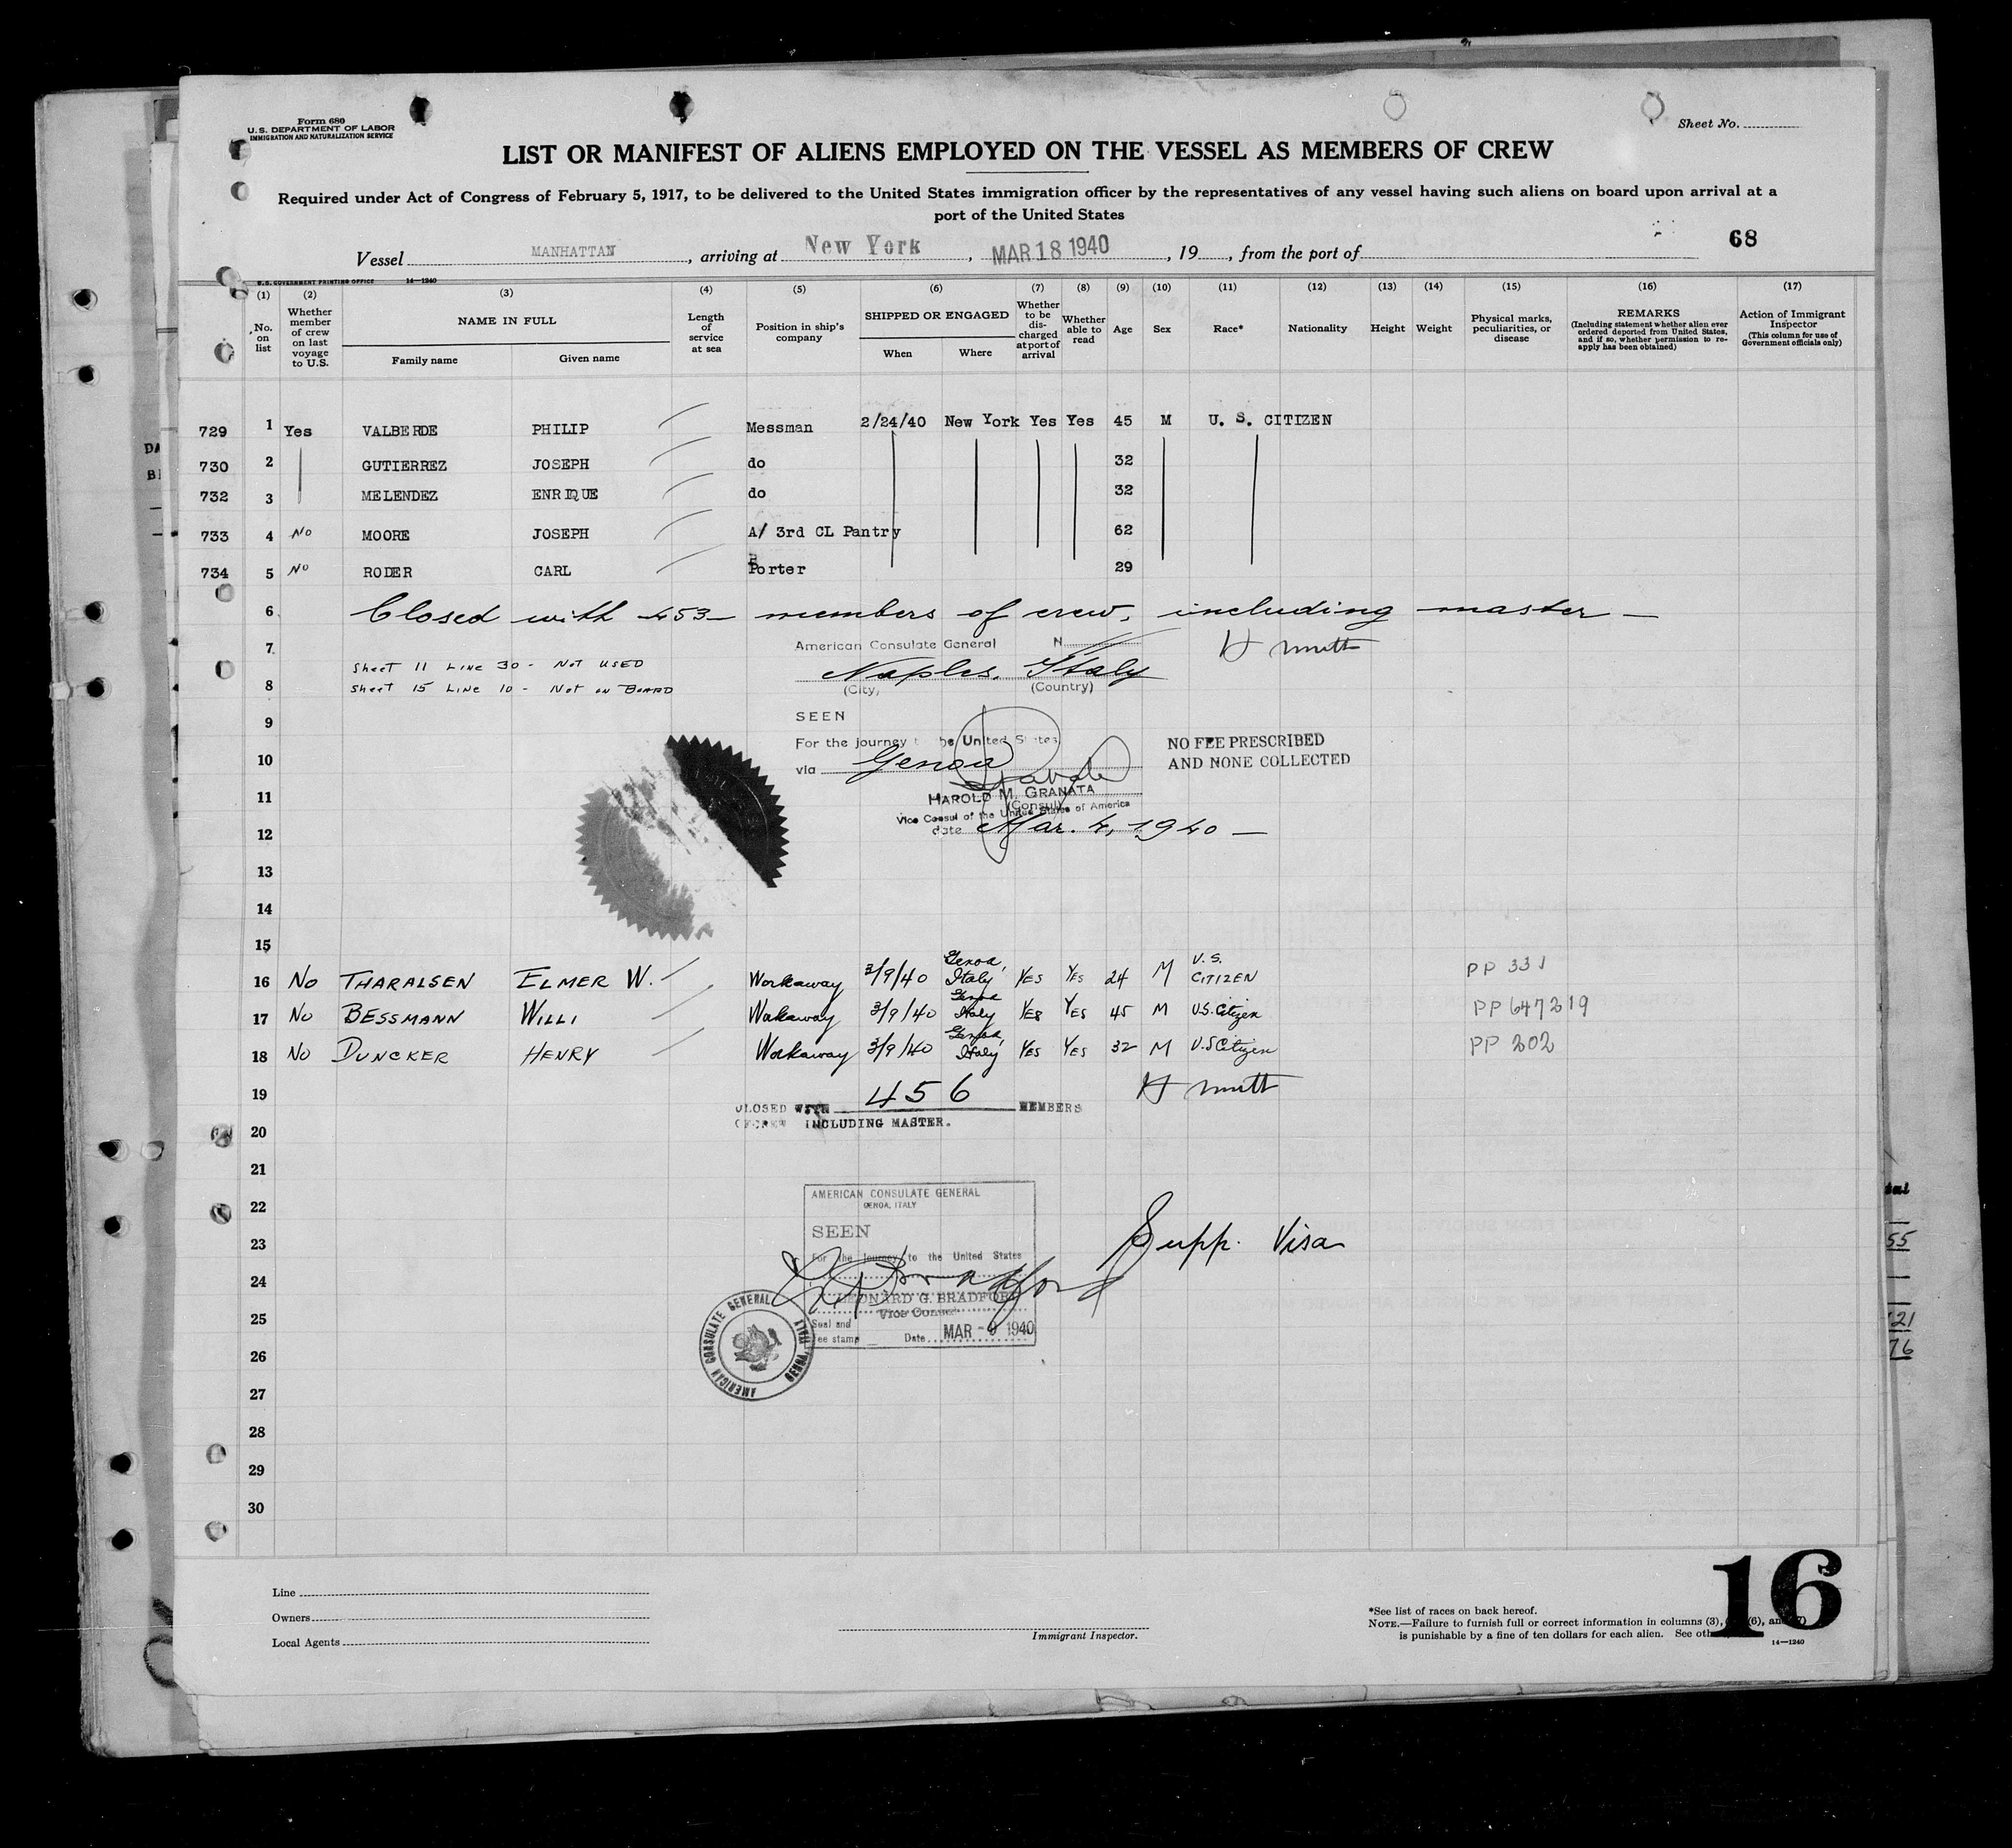 Form 680
U.S. DEPARTMENT OF LABOR
IMMIGRATION AND NATURALIZATION SERVICE
Sheet No.
LIST OR MANIFEST OF ALIENS EMPLOYED ON THE VESSEL AS MEMBERS OF CREW
Required under Act of Congress of February 5, 1917, to be delivered to the United States immigration officer by the representatives of any vessel having such aliens on board upon arrival at a
port of the United States
68
Vessel MANHATTAN, arriving at New York, MAR 18 1940, 19, from the port of
U.S. GOVERNMENT PRINTING OFFICE 14—1240
(1) (2) (3) (4) (5) (6) (7) (8) (9) (10) (11) (12) (13) (14) (15) (16) (17)
No. on list
Whether member of crew on last voyage to U.S.
NAME IN FULL
Family name Given name
Length of service at sea
Position in ship's company
SHIPPED OR ENGAGED
When Where
Whether to be discharged at port of arrival
Whether able to read
Age
Sex
Race*
Nationality
Height
Weight
Physical marks, peculiarities, or disease
REMARKS
(Including statement whether alien ever ordered deported from United States, and if so, whether permission to re-apply has been obtained)
Action of Immigrant Inspector
(This column for use of Government officials only)
729 1 Yes VALBERDE PHILIP Messman 2/24/40 New York Yes Yes 45 M U. S. CITIZEN
730 2 GUTIERREZ JOSEPH do 32
732 3 MELENDEZ ENRIQUE do 32
733 4 No MOORE JOSEPH A/ 3rd CL Pantry 62
734 5 No RODER CARL Porter 29
6 Closed with 453 members of crew, including master
7 American Consulate General
Sheet 11 Line 30 - Not USED
Naples, Italy
8 Sheet 15 Line 10 - Not on BOARD
(City) (Country)
9 SEEN
For the journey to the United States
NO FEE PRESCRIBED
10 via Genoa
AND NONE COLLECTED
11 HAROLD M. GRANATA
(Consul)
Vice Consul of the United States of America
12 date Mar. 4, 1940
13
14
15
16 No THARALSEN ELMER W. Workaway 3/9/40 Genoa, Italy YES YES 24 M U.S. CITIZEN PP 331
17 No BESSMANN WILLI Workaway 3/9/40 Genoa Italy YES YES 45 M U.S. Citizen PP 647219
18 No DUNCKER HENRY Workaway 3/9/40 Genoa, Italy YES YES 32 M U.S Citizen PP 202
19 CLOSED WITH 456 MEMBERS
20 OF CREW INCLUDING MASTER.
21
22 AMERICAN CONSULATE GENERAL
GENOA, ITALY
23 SEEN
Supp. Visa
For the journey to the United States
24
LEONARD G. BRADFORD
25 Vice Consul
Seal and
Fee stamp Date MAR -9 1940
AMERICAN CONSULATE GENERAL GENOA, ITALY
26
27
28
29
30
Line
Owners
Local Agents
Immigrant Inspector.
*See list of races on back hereof.
NOTE.—Failure to furnish full or correct information in columns (3), (6), and (7)
is punishable by a fine of ten dollars for each alien. See
14—1240
16